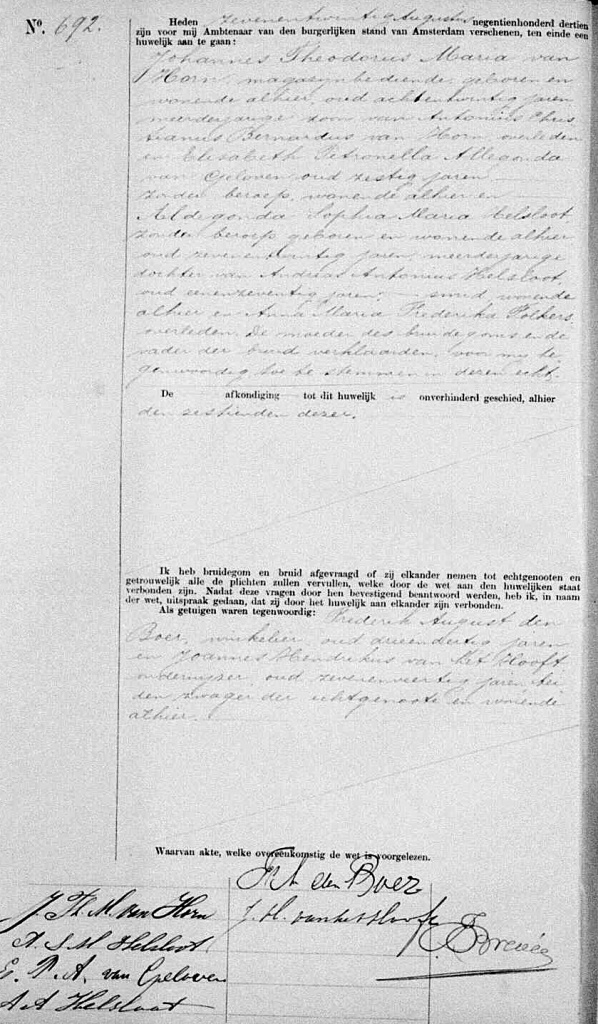 No. 692.
Heden zevenentwintig Augustus negentienhonderd dertien
zijn voor mij Ambtenaar van den burgerlijken stand van Amsterdam verschenen, ten einde een
huwelijk aan te gaan:
Johannes Theodorus Maria van
Horn, magazijnbediende, geboren en
wonende alhier, oud achtentwintig jaren,
meerderjarige zoon van Antonius Chris
tianus Bernardus van Horn, overleden
en Elisabeth Petronella Allegonda
van Geloven oud zestig jaren
zonder beroep, wonende alhier en
Aldegonda Sophia Maria Helsloot,
zonder beroep geboren en wonende alhier
oud zevenentwintig jaren, meerderjarige
dochter van Andreas Antonius Helsloot,
oud eenenzeventig jaren, smid, wonende
alhier en Anna Maria Frederika Folkers
overleden. De moeder des bruidegoms en de
vader der bruid verklaarden, voor mij te
genwoordig toe te stemmen in dezen echt.
De afkondiging tot dit huwelijk is onverhinderd geschied, alhier
den zestienden dezer.
Ik heb bruidegom en bruid afgevraagd of zij elkander nemen tot echtgenooten en
getrouwelijk alle de plichten zullen vervullen, welke door de wet aan den huwelijken staat
verbonden zijn. Nadat deze vragen door hen bevestigend beantwoord werden, heb ik, in naam
der wet, uitspraak gedaan, dat zij door het huwelijk aan elkander zijn verbonden.
Als getuigen waren tegenwoordig: Frederik August den
Boer, winkelier oud drieendertig jaren
en Joannes Hendrikus van het Hooft
onderwijzer, oud zevenenveertig jaren, bei
den zwager der echtgenoote en wonende
alhier.
Waarvan akte, welke overeenkomstig de wet is voorgelezen.
F. A. den Boer
J. Th. M. van Horn
J. H. van het Hooft
A. S. M. Helsloot
E. P. A. van Geloven
A A Helsloot